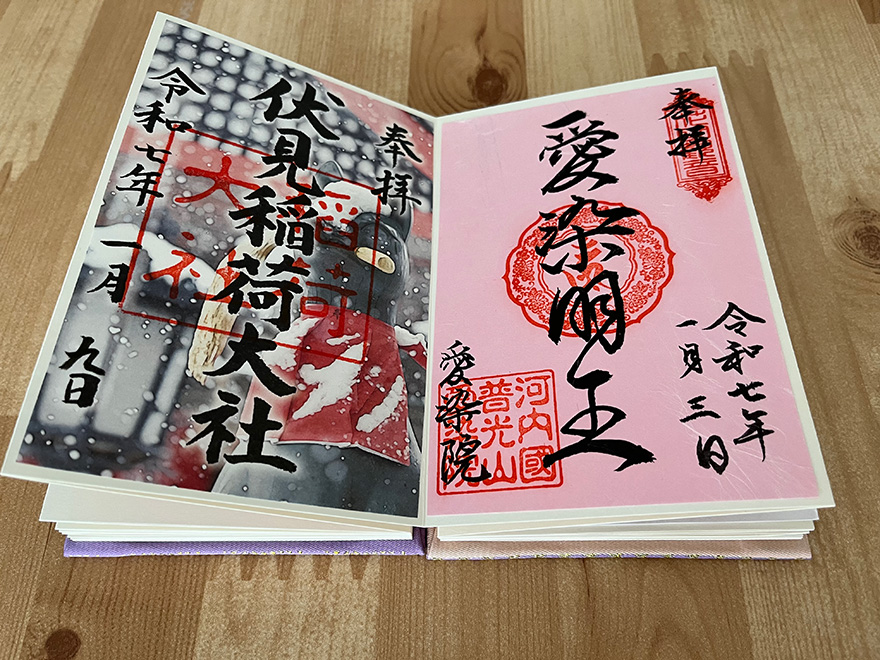 奉拝
伏見稲荷大社
稲荷
大社
令和七年
一月
九日
奉拝
愛染明王
令和七年
一月三日
河内國
普光山
愛染院